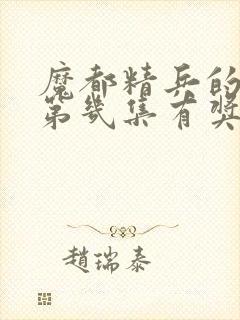 魔都精兵的
第几集有奖
趙瑞泰